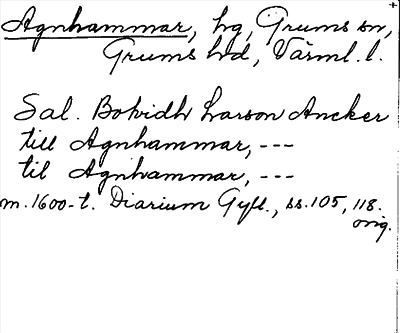 Agnhammar, hg, Grums sn,
Grums hd, Värml. l.
Sal. Botvidh Larson Ancker
till Agnhammar, ---
til Agnhammar, ---
m.1600-t. Diarium Gyll., ss.105, 118.
orig.